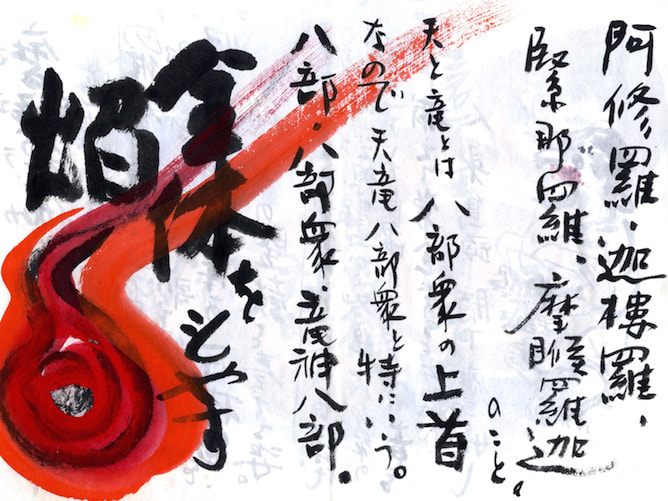 阿修羅・迦樓羅・
緊那羅、摩睺羅迦
のこと。
天と竜とは八部衆の上首
なので天竜八部衆と特にいう。
八部・八部衆・竜神八部.
全体を
焔